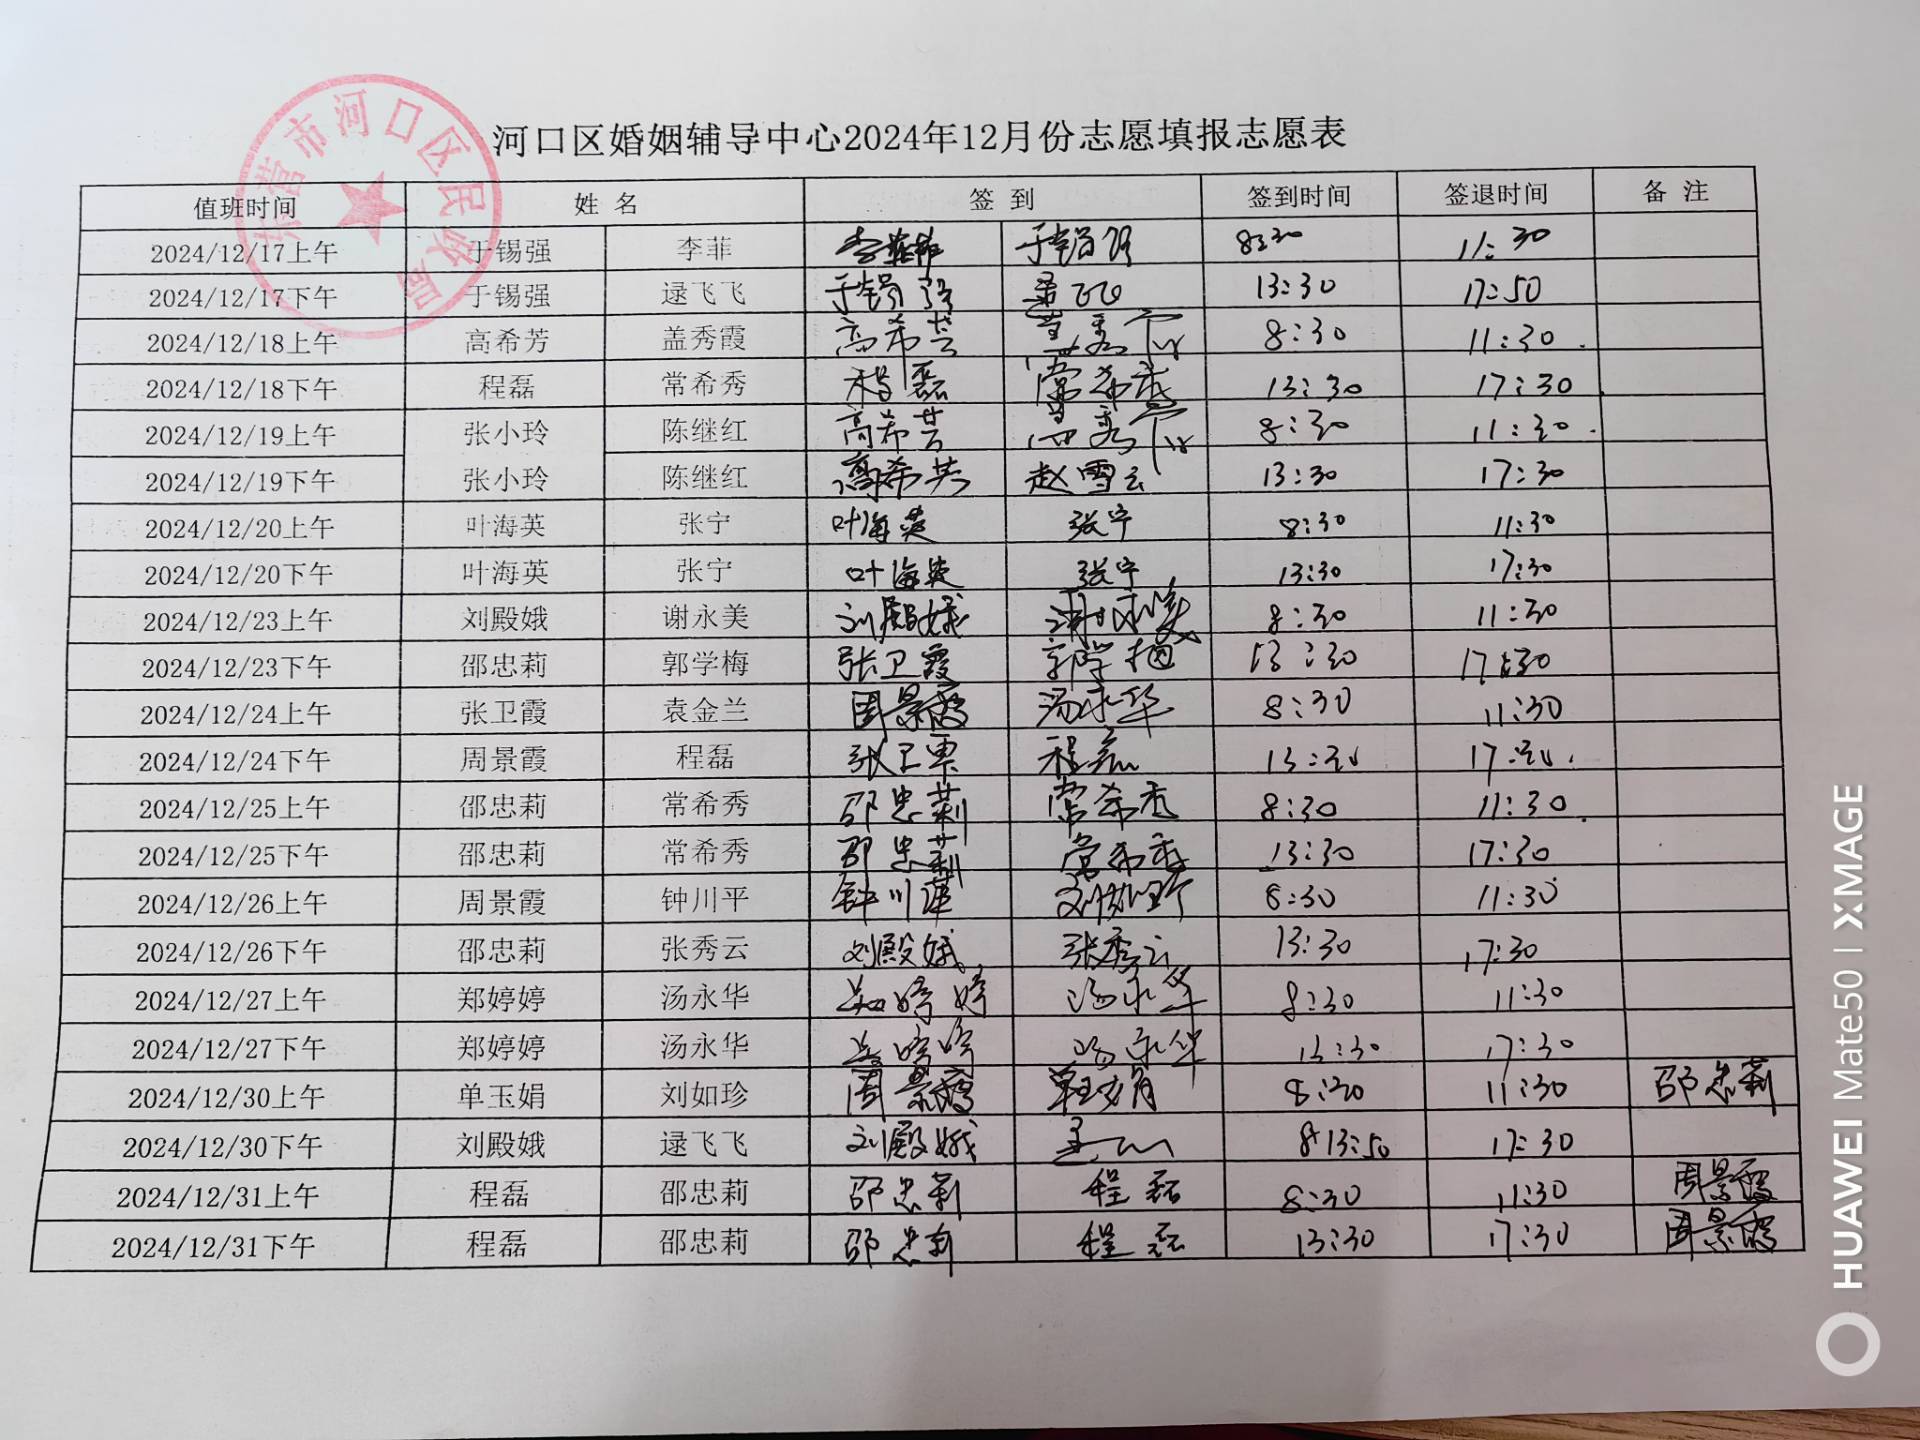 东营市河口区民政局
河口区婚姻辅导中心2024年12月份志愿填报志愿表
值班时间 姓 名 签 到 签到时间 签退时间 备 注
2024/12/17上午 于锡强 李菲 李菲 于锡强 8:30 11:30
2024/12/17下午 于锡强 逯飞飞 于锡强 13:30 17:50
2024/12/18上午 高希芳 盖秀霞 高希芳 盖秀霞 8:30 11:30
2024/12/18下午 程磊 常希秀 程磊 常希秀 13:30 17:30
2024/12/19上午 张小玲 陈继红 高希芳 盖秀霞 8:30 11:30
2024/12/19下午 张小玲 陈继红 高希芳 赵雪云 13:30 17:30
2024/12/20上午 叶海英 张宁 叶海英 张宁 8:30 11:30
2024/12/20下午 叶海英 张宁 叶海英 张宁 13:30 17:30
2024/12/23上午 刘殿娥 谢永美 刘殿娥 谢永美 8:30 11:30
2024/12/23下午 邵忠莉 郭学梅 张卫霞 郭学梅 13:30 17:30
2024/12/24上午 张卫霞 袁金兰 周景霞 汤永华 8:30 11:30
2024/12/24下午 周景霞 程磊 张卫霞 程磊 13:30 17:30
2024/12/25上午 邵忠莉 常希秀 邵忠莉 常希秀 8:30 11:30
2024/12/25下午 邵忠莉 常希秀 邵忠莉 常希秀 13:30 17:30
2024/12/26上午 周景霞 钟川平 钟川萍 8:30 11:30
2024/12/26下午 邵忠莉 张秀云 刘殿娥 张秀云 13:30 17:30
2024/12/27上午 郑婷婷 汤永华 郑婷婷 汤永华 8:30 11:30
2024/12/27下午 郑婷婷 汤永华 郑婷婷 汤永华 13:30 17:30
2024/12/30上午 单玉娟 刘如珍 周景霞 单玉娟 8:30 11:30 邵忠莉
2024/12/30下午 刘殿娥 逯飞飞 刘殿娥 13:50 17:30
2024/12/31上午 程磊 邵忠莉 邵忠莉 程磊 8:30 11:30 周景霞
2024/12/31下午 程磊 邵忠莉 邵忠莉 程磊 13:30 17:30 周景霞
HUAWEI Mate50 | XMAGE